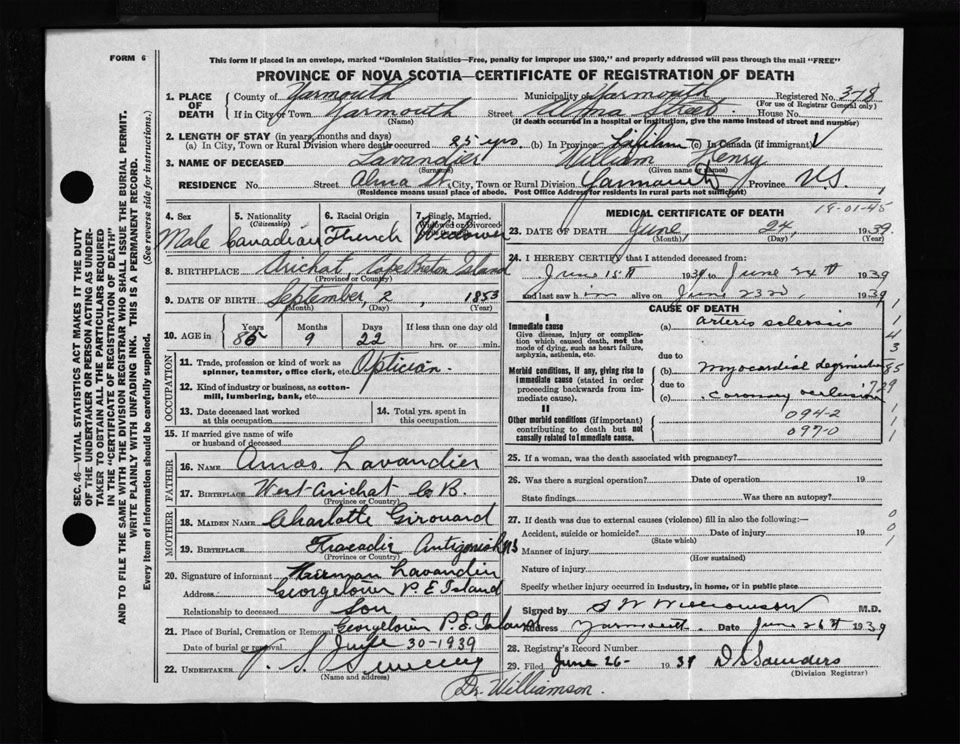 FORM 6
This form if placed in an envelope, marked "Dominion Statistics—Free, penalty for improper use $300," and properly addressed will pass through the mail "FREE"
PROVINCE OF NOVA SCOTIA—CERTIFICATE OF REGISTRATION OF DEATH
1. PLACE OF DEATH County of Yarmouth Municipality of Yarmouth Registered No. 378
(For use of Registrar General only)
If in City or Town Yarmouth Street Alma Street House No.
(Name) (If death occurred in a hospital or institution, give the name instead of street and number)
2. LENGTH OF STAY (in years, months and days)
(a) In City, Town or Rural Division where death occurred 25 yrs. (b) In Province Lifetime (c) In Canada (if immigrant)
3. NAME OF DECEASED Lavandier William Henry
(Surname) (Given name or names)
RESIDENCE No. Street Alma St. City, Town or Rural Division Yarmouth Province N.S.
(Residence means usual place of abode. Post Office Address for residents in rural parts not sufficient)
4. Sex 5. Nationality (Citizenship) 6. Racial Origin 7. Single, Married, Widowed or Divorced
Male Canadian French Widower
8. BIRTHPLACE Arichat, Cape Breton Island
(Province or Country)
9. DATE OF BIRTH September, 2, 1853
(Month) (Day) (Year)
10. AGE in Years Months Days If less than one day old
85 9 22 hrs. or min.
OCCUPATION
11. Trade, profession or kind of work as spinner, teamster, office clerk, etc. Optician.
12. Kind of industry or business, as cotton-mill, lumbering, bank, etc.
13. Date deceased last worked at this occupation 14. Total yrs. spent in this occupation
15. If married give name of wife or husband of deceased
FATHER
16. NAME Amos Lavandier
17. BIRTHPLACE West Arichat C.B.
(Province or Country)
MOTHER
18. MAIDEN NAME Charlotte Girouard
19. BIRTHPLACE Tracadie Antigonish NS
(Province or Country)
20. Signature of informant Lavandier
Address Georgetown P.E Island
Relationship to deceased Son
21. Place of Burial, Cremation or Removal Georgetown P.E. Island
Date of burial or removal 30-1939
22. UNDERTAKER V. S. Sweeny
(Name and address)
Dr. Williamson.
MEDICAL CERTIFICATE OF DEATH
19-01-45
23. DATE OF DEATH June, 24, 1939
(Month) (Day) (Year)
24. I HEREBY CERTIFY that I attended deceased from:
June 15th 1939 to June 24th 1939
and last saw him alive on June 23rd, 1939
CAUSE OF DEATH
I
Immediate cause
Give disease, injury or complication which caused death, not the mode of dying, such as heart failure, asphyxia, asthenia, etc.
(a) arterio sclerosis
due to
Morbid conditions, if any, giving rise to immediate cause (stated in order proceeding backwards from immediate cause).
(b) myocardial degeneration
due to
(c) coronary occlusion
II
Other morbid conditions (if important) contributing to death but not causally related to immediate cause.
094-2
097-0
25. If a woman, was the death associated with pregnancy?
26. Was there a surgical operation? Date of operation 19
State findings Was there an autopsy?
27. If death was due to external causes (violence) fill in also the following:—
Accident, suicide or homicide? Date of injury 19
(State which)
Manner of injury
(How sustained)
Nature of injury
Specify whether injury occurred in industry, in home, or in public place
Signed by S W Williamson M.D.
Address Yarmouth Date June 26th 1939
28. Registrar's Record Number
29. Filed June 26- 1939 D S Saunders
(Division Registrar)
SEC. 46—VITAL STATISTICS ACT MAKES IT THE DUTY
OF THE UNDERTAKER OR PERSON ACTING AS UNDER-
TAKER TO OBTAIN ALL THE PARTICULARS REQUIRED
IN THE "CERTIFICATE OF REGISTRATION OF DEATH"
AND TO FILE THE SAME WITH THE DIVISION REGISTRAR WHO SHALL ISSUE THE BURIAL PERMIT.
WRITE PLAINLY WITH UNFADING INK. THIS IS A PERMANENT RECORD.
Every item of information should be carefully supplied. (See reverse side for instructions.)